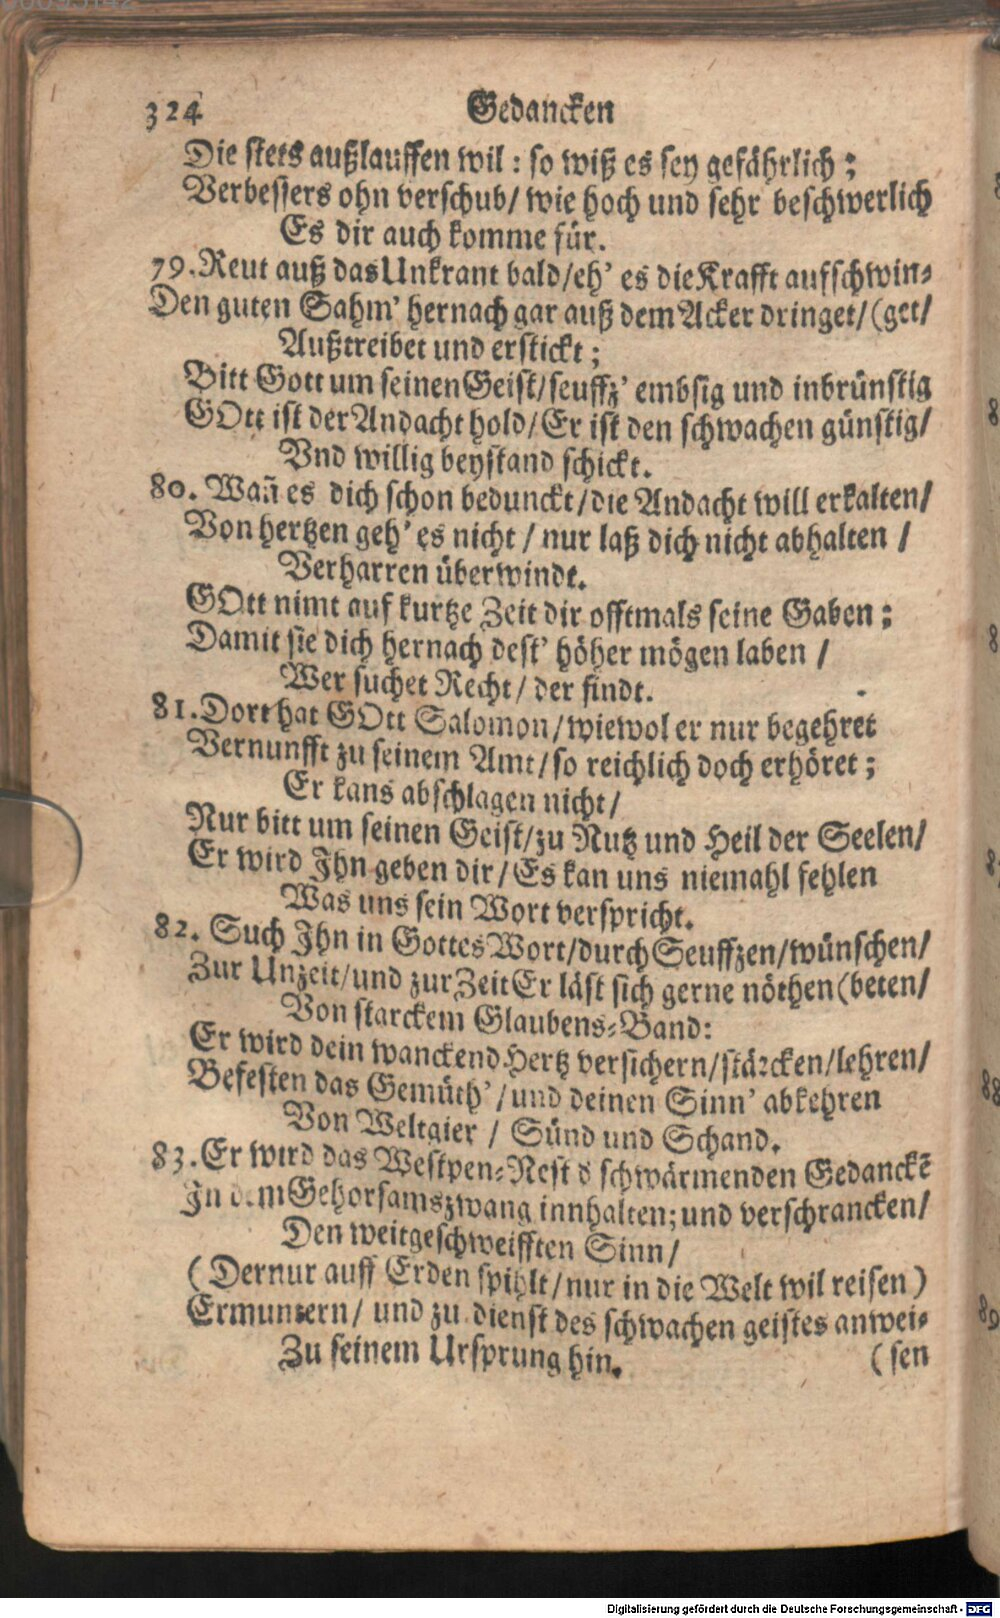 324 Gedancken
Die stets außlauffen wil: so wiß es sey gefährlich;
Verbessers ohn verschub/ wie hoch und sehr beschwerlich
Es dir auch komme für.
79. Reut auß das Unkraut bald/ eh' es die Krafft aufschwin-
Den guten Sahm' hernach gar auß dem Acker dringet/ (get/
Außtreibet und erstickt;
Bitt Gott um seinen Geist/ seuffz' embsig und inbrünstig
GOtt ist der Andacht hold/ Er ist den schwachen günstig/
Vnd willig beystand schickt.
80. Wañ es dich schon bedunckt/ die Andacht will erkalten/
Von hertzen geh' es nicht/ nur laß dich nicht abhalten/
Verharren überwindt.
GOtt nimt auf kurtze Zeit dir offtmals seine Gaben;
Damit sie dich hernach dest' höher mögen laben/
Wer suchet Recht/ der findt.
81. Dort hat GOtt Salomon/ wiewol er nur begehret
Vernunfft zu seinem Amt/ so reichlich doch erhöret;
Er kans abschlagen nicht/
Nur bitt um seinen Geist/ zu Nutz und Heil der Seelen/
Er wird Ihn geben dir/ Es kan uns niemahl fehlen
Was uns sein Wort verspricht.
82. Such Ihn in Gottes Wort/ durch Seuffzen/ wünschen/
Zur Unzeit/ und zur Zeit Er läst sich gerne nöthen (beten/
Von starckem Glaubens-Band:
Er wird dein wanckend Hertz versichern/ stärcken/ lehren/
Befesten das Gemüth'/ und deinen Sinn' abkehren
Von Weltgier/ Sünd und Schand.
83. Er wird das Westpen-Nest d schwärmenden Gedanckẽ
In dem Gehorsamszwang innhalten; und verschrancken/
Den weitgeschweifften Sinn/
(Der nur auff Erden spihlt/ nur in die Welt wil reisen)
Ermuntern/ und zu dienst des schwachen geistes anwei-
Zu seinem Ursprung hin. (sen
Digitalisierung gefördert durch die Deutsche Forschungsgemeinschaft - DFG